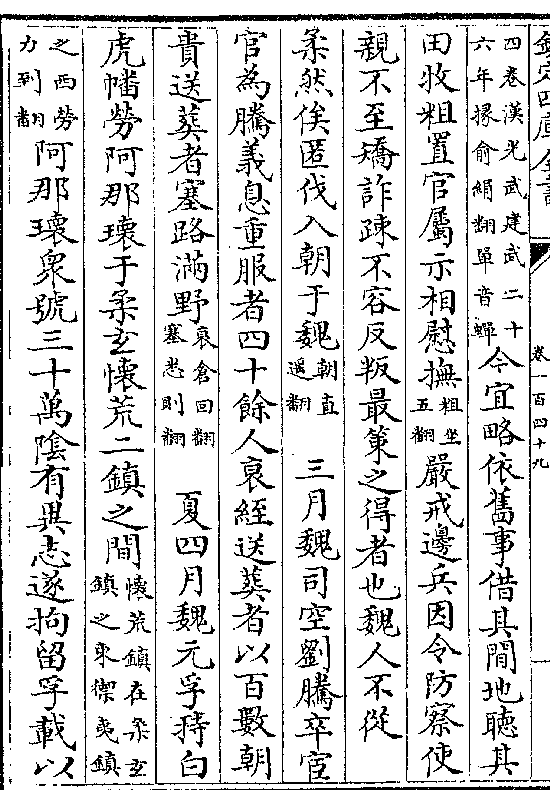 欽定四庫全書 卷一百四十九
四卷漢光武建武二十六年掾俞絹翻單音蟬今宜略依舊事借其閒地聽其
田牧粗置官屬示相慰撫粗坐五翻嚴戒邊兵因令防察使
親不至矯詐疎不容反叛最策之得者也魏人不從
柔然俟匿伐入朝于魏朝直遥翻 三月魏司空劉騰卒宦
官為騰義息重服者四十餘人衰絰送葬者以百數朝
貴送葬者塞路滿野衰倉回翻塞悉則翻 夏四月魏元孚持白
虎幡勞阿那瓌于柔玄懷荒二鎮之間懷荒鎮在柔玄鎮之東禦夷鎮
之西勞力到翻阿那瓌衆號三十萬陰有異志遂拘留孚載以